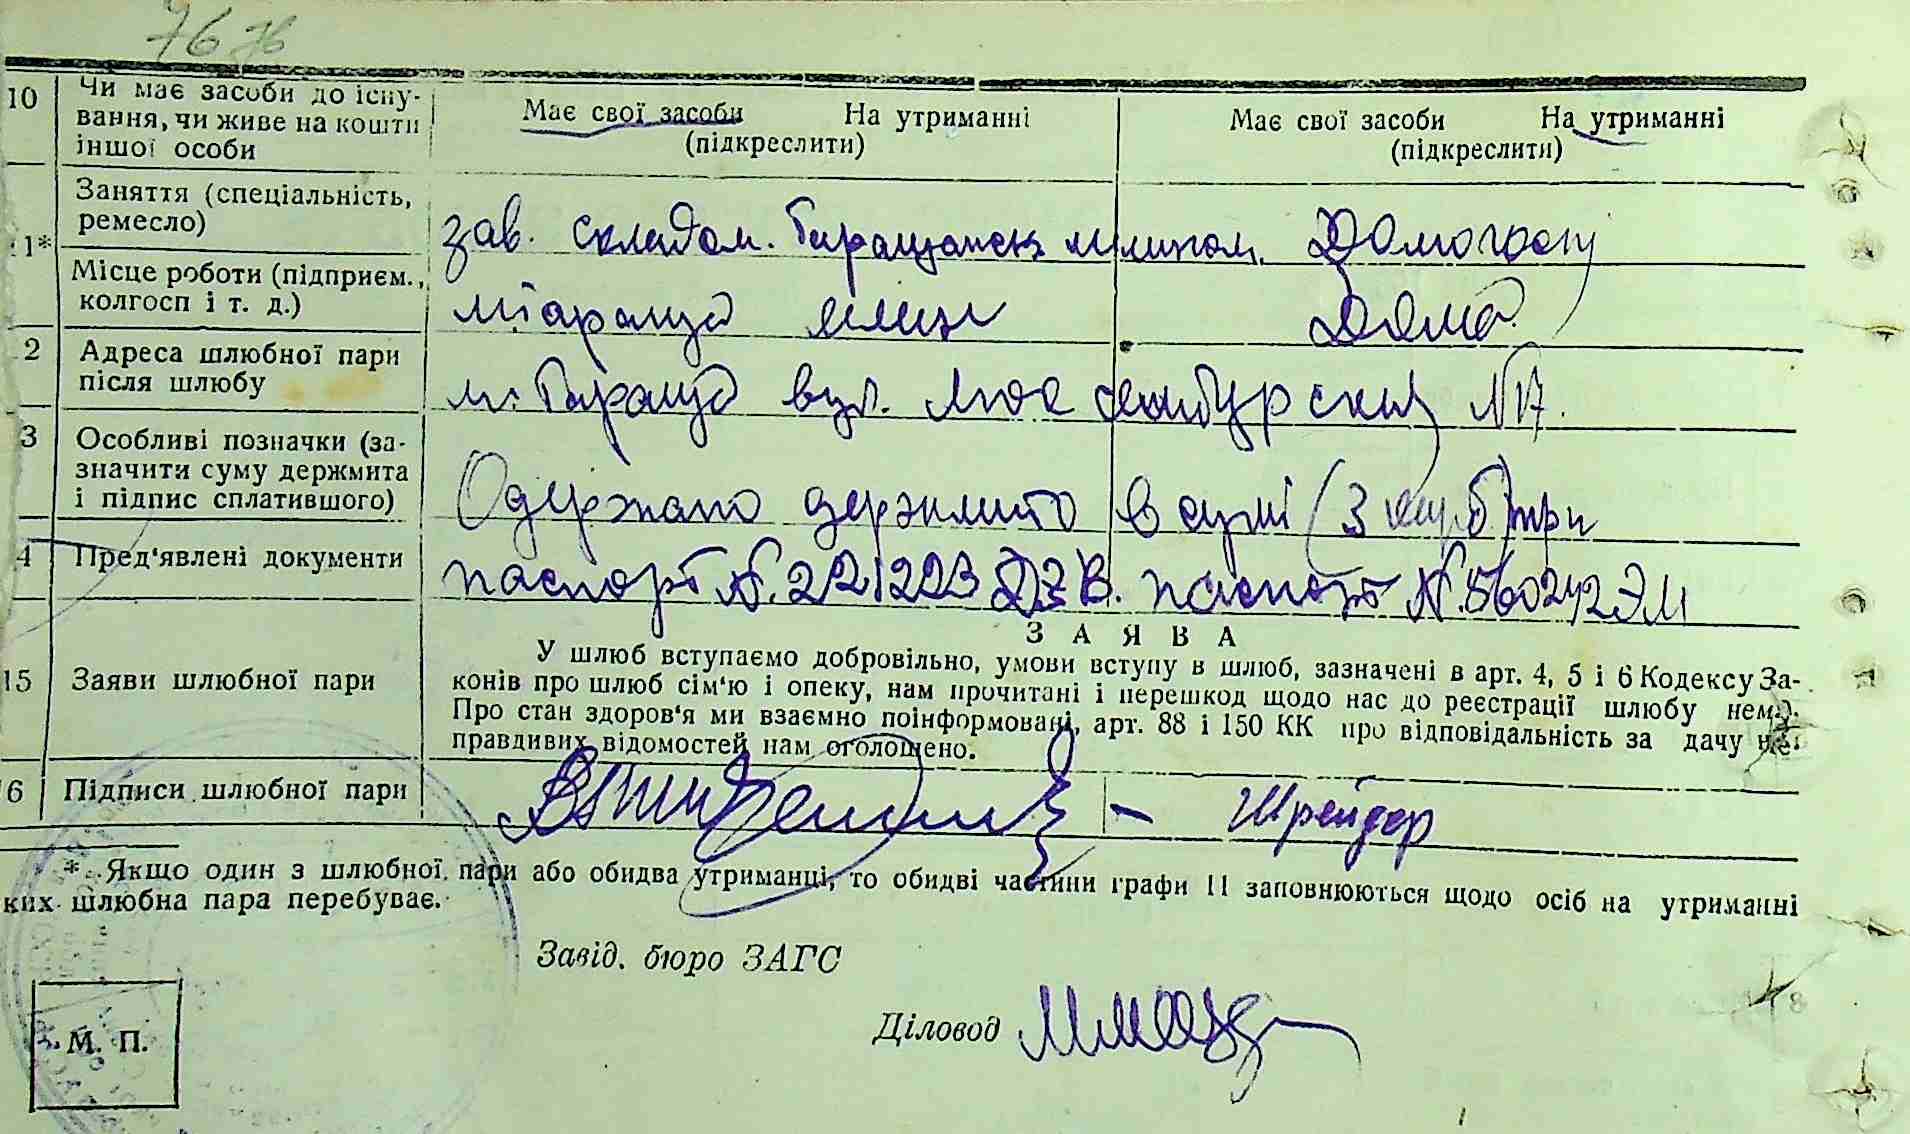 76 76
10 Чи має засоби до існу-
вання, чи живе на кошти
іншої особи
Має свої засоби На утриманні
(підкреслити)
Має свої засоби На утриманні
(підкреслити)
11* Заняття (спеціальність,
ремесло)
зав. складом. Таращанск млином. Домогосп
Місце роботи (підприєм.,
колгосп і т. д.)
м Тараща млин Дома
2 Адреса шлюбної пари
після шлюбу
м. Тараща вул. Люксембурский N 17.
3 Особливі позначки (за-
значити суму держмита
і підпис сплатившого)
Одержано держмито в сумі (3 карб) три
4 Пред'явлені документи
паспорт N. 221223 ДЗВ. паспорт N. 560242 ЭМ
15 Заяви шлюбної пари
ЗАЯВА
У шлюб вступаємо добровільно, умови вступу в шлюб, зазначені в арт. 4, 5 і 6 Кодексу За-
конів про шлюб сім'ю і опеку, нам прочитані і перешкод щодо нас до реєстрації шлюбу нема.
Про стан здоров'я ми взаємно поінформовані, арт. 88 і 150 КК про відповідальність за дачу не-
правдивих відомостей нам оголошено.
6 Підписи шлюбної пари
Шрейдер
* Якщо один з шлюбної пари або обидва утриманці, то обидві частини графи 11 заповнюються щодо осіб на утриманні
ких шлюбна пара перебуває.
Завід. бюро ЗАГС
Діловод
М. П.